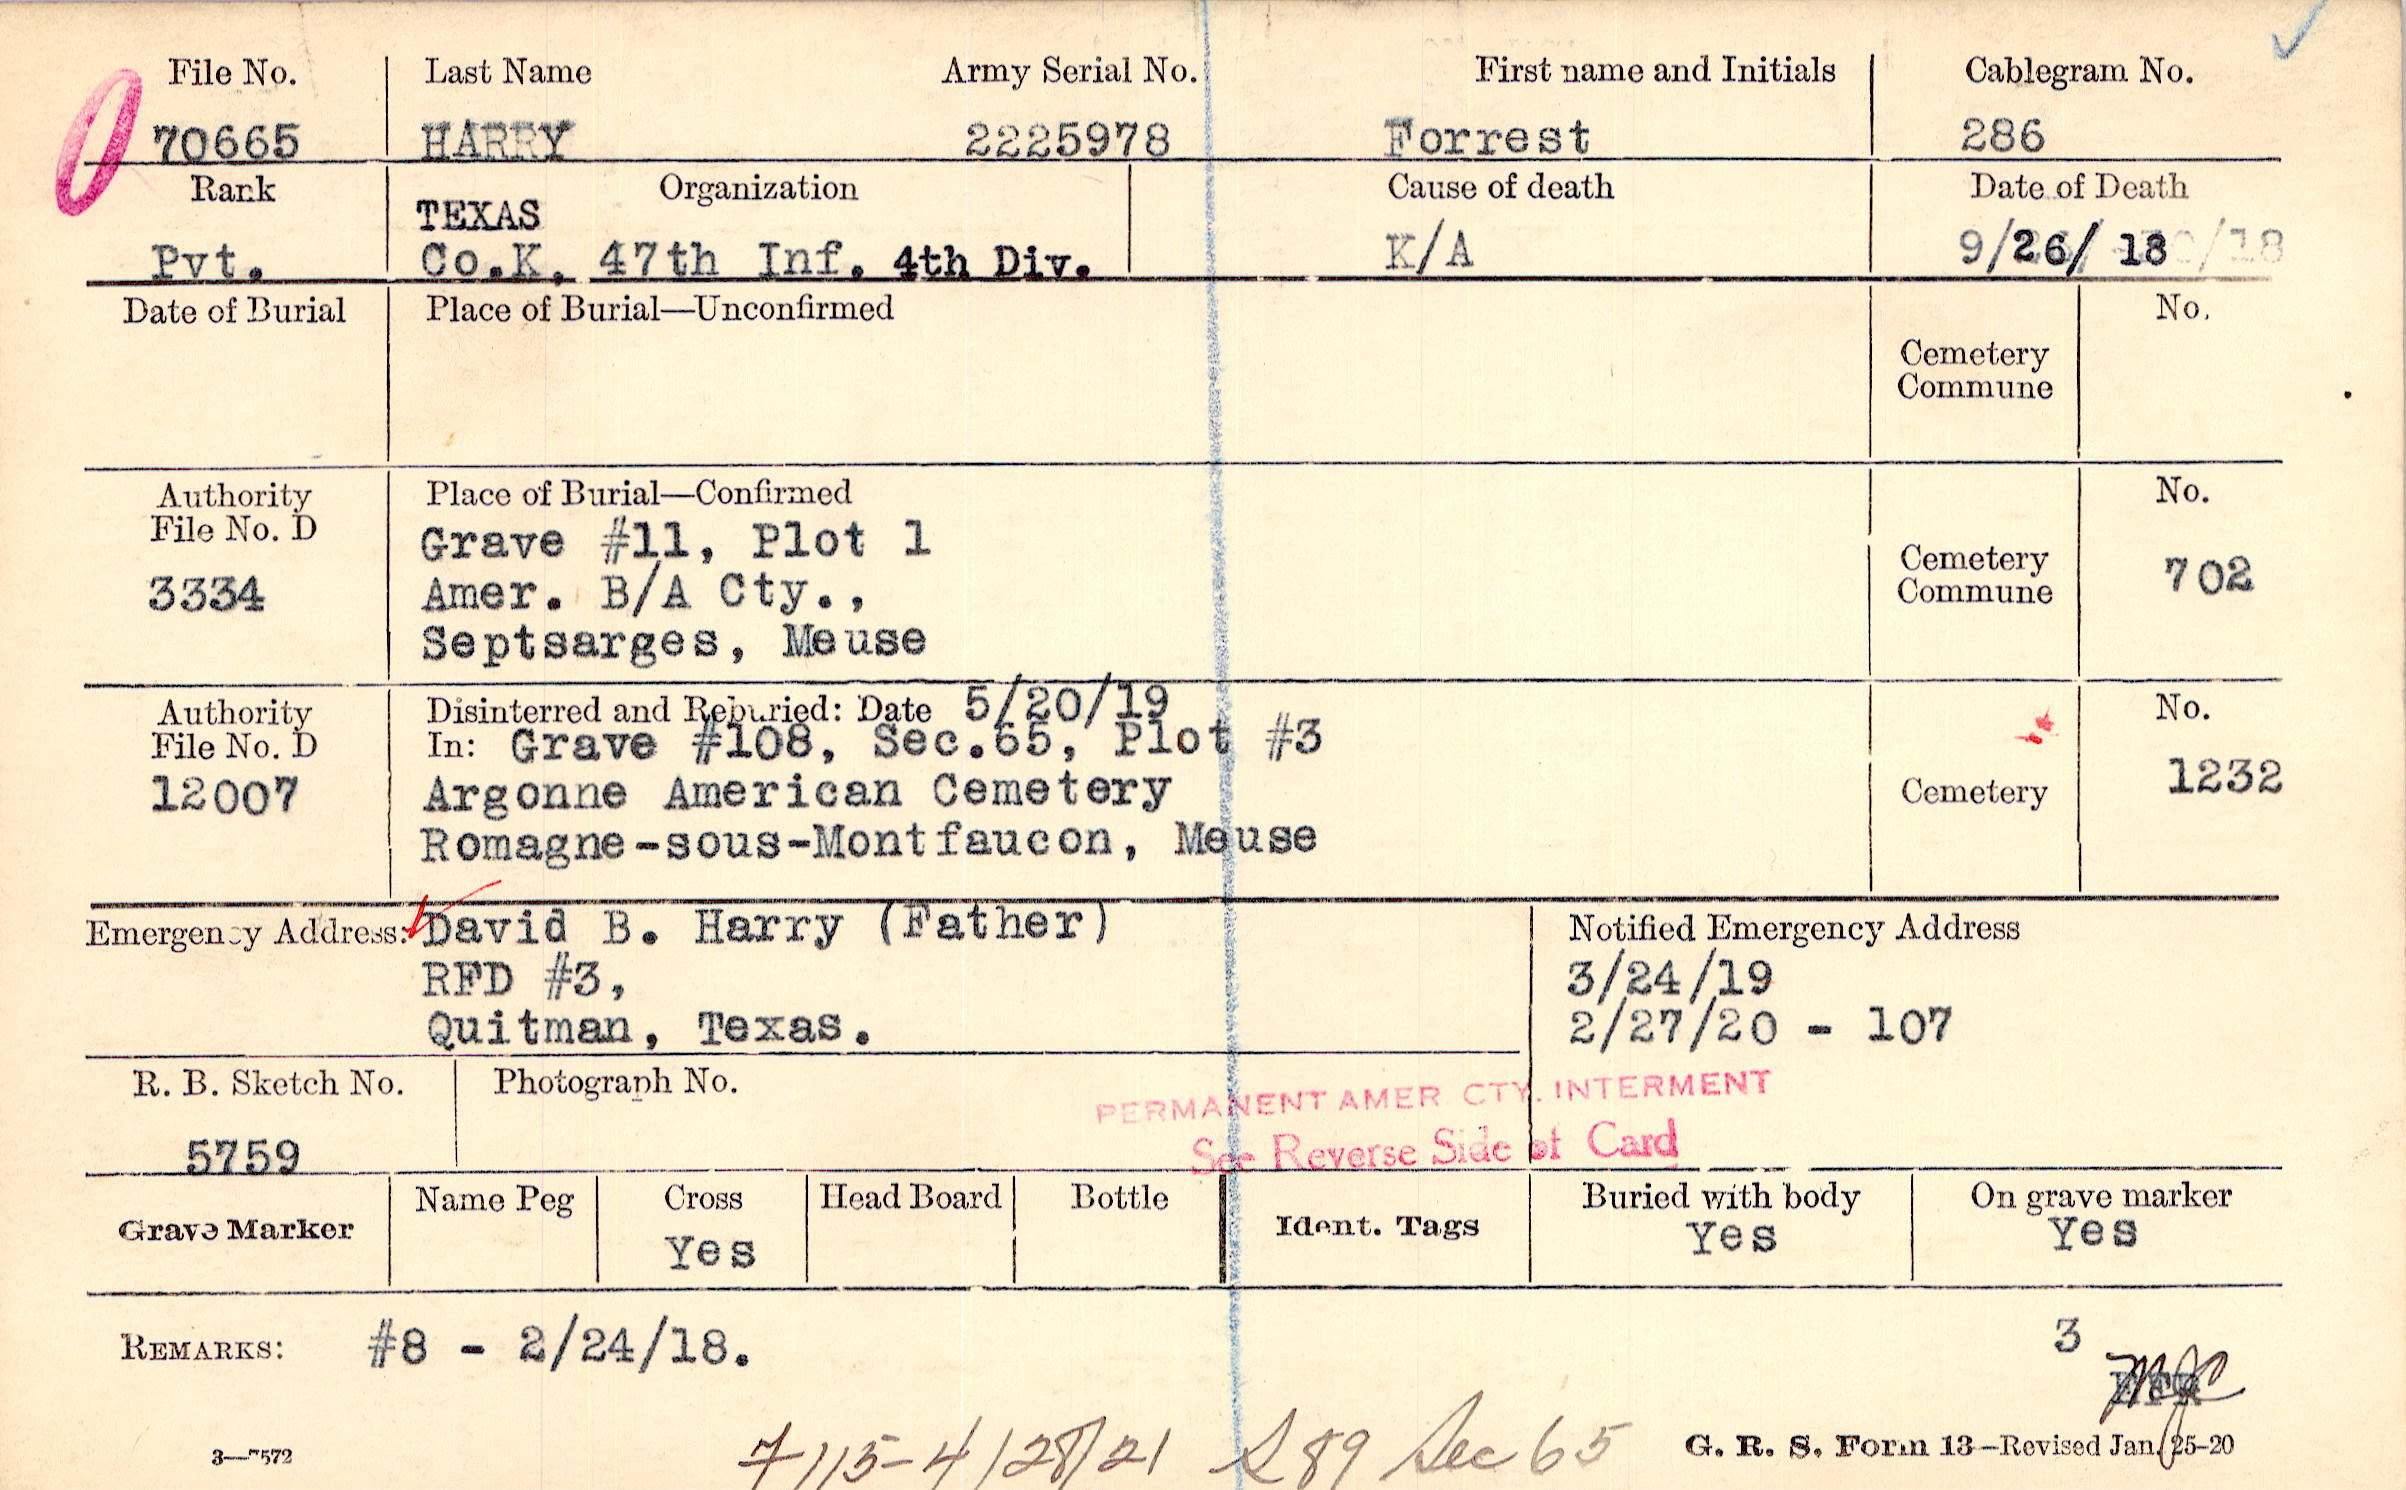 File No. Last Name Army Serial No. First name and Initials Cablegram No.
70665 HARRY 2225978 Forrest 286
Rank Organization Cause of death Date of Death
TEXAS
Pvt. Co.K, 47th Inf. 4th Div. K/A 9/26/ 18 0/18
Date of Burial Place of Burial—Unconfirmed No.
Cemetery
Commune
Authority Place of Burial—Confirmed No.
File No. D Grave #11, Plot 1
3334 Amer. B/A Cty., Cemetery 702
Commune
Septsarges, Meuse
Authority Disinterred and Reburied: Date 5/20/19 No.
File No. D In: Grave #108, Sec.65, Plot #3
12007 Argonne American Cemetery Cemetery 1232
Romagne-sous-Montfaucon, Meuse
Emergency Address: David B. Harry (Father) Notified Emergency Address
RFD #3, 3/24/19
Quitman, Texas. 2/27/20 - 107
R. B. Sketch No. Photograph No.
PERMANENT AMER CTY. INTERMENT
5759 See Reverse Side of Card
Grave Marker Name Peg Cross Head Board Bottle Ident. Tags Buried with body On grave marker
Yes Yes Yes
REMARKS: #8 - 2/24/18. 3
3—7572 G. R. S. Form 13—Revised Jan. 25-20
7115-4/28/21 289 Sec 65